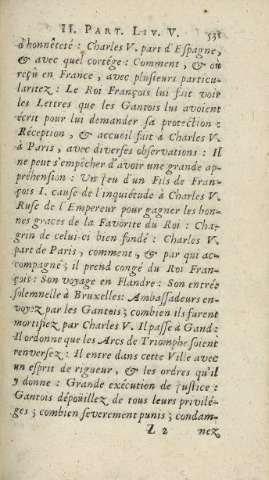 II. PART. LIV. V. 531
d'honnêteté : Charles V. part d'Espagne,
& avec quel cortége : Comment, & où
reçû en France, avec plusieurs particu-
laritez : Le Roi François lui fait voir
les Lettres que les Gantois lui avoient
écrit pour lui demander sa protection :
Réception, & accueil fait à Charles V.
à Paris, avec diverses observations : Il
ne peut s'empêcher d'avoir une grande ap-
préhension : Un jeu d'un Fils de Fran-
çois I. cause de l'inquiétude à Charles V.
Ruse de l'Empereur pour gagner les bon-
nes graces de la Favorite du Roi : Cha-
grin de celui-ci bien fondé : Charles V.
part de Paris, comment, & par qui ac-
compagné ; il prend congé du Roi Fran-
çois : Son voyage en Flandre : Son entrée
solemnelle à Bruxelles : Ambassadeurs en-
voyez par les Gantois ; combien ils furent
mortifiez par Charles V. Il passe à Gand :
Il ordonne que les Arcs de Triomphe soient
renversez : Il entre dans cette Ville avec
un esprit de rigueur, & les ordres qu'il
y donne : Grande exécution de justice :
Gantois dépoüillez de tous leurs privilé-
ges ; combien severement punis ; condam-
Z 2 nez